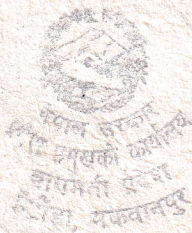 नेपाल सरकार
कार्यालय
बागमती प्रदेश
हेटौंडा, मकवानपुर